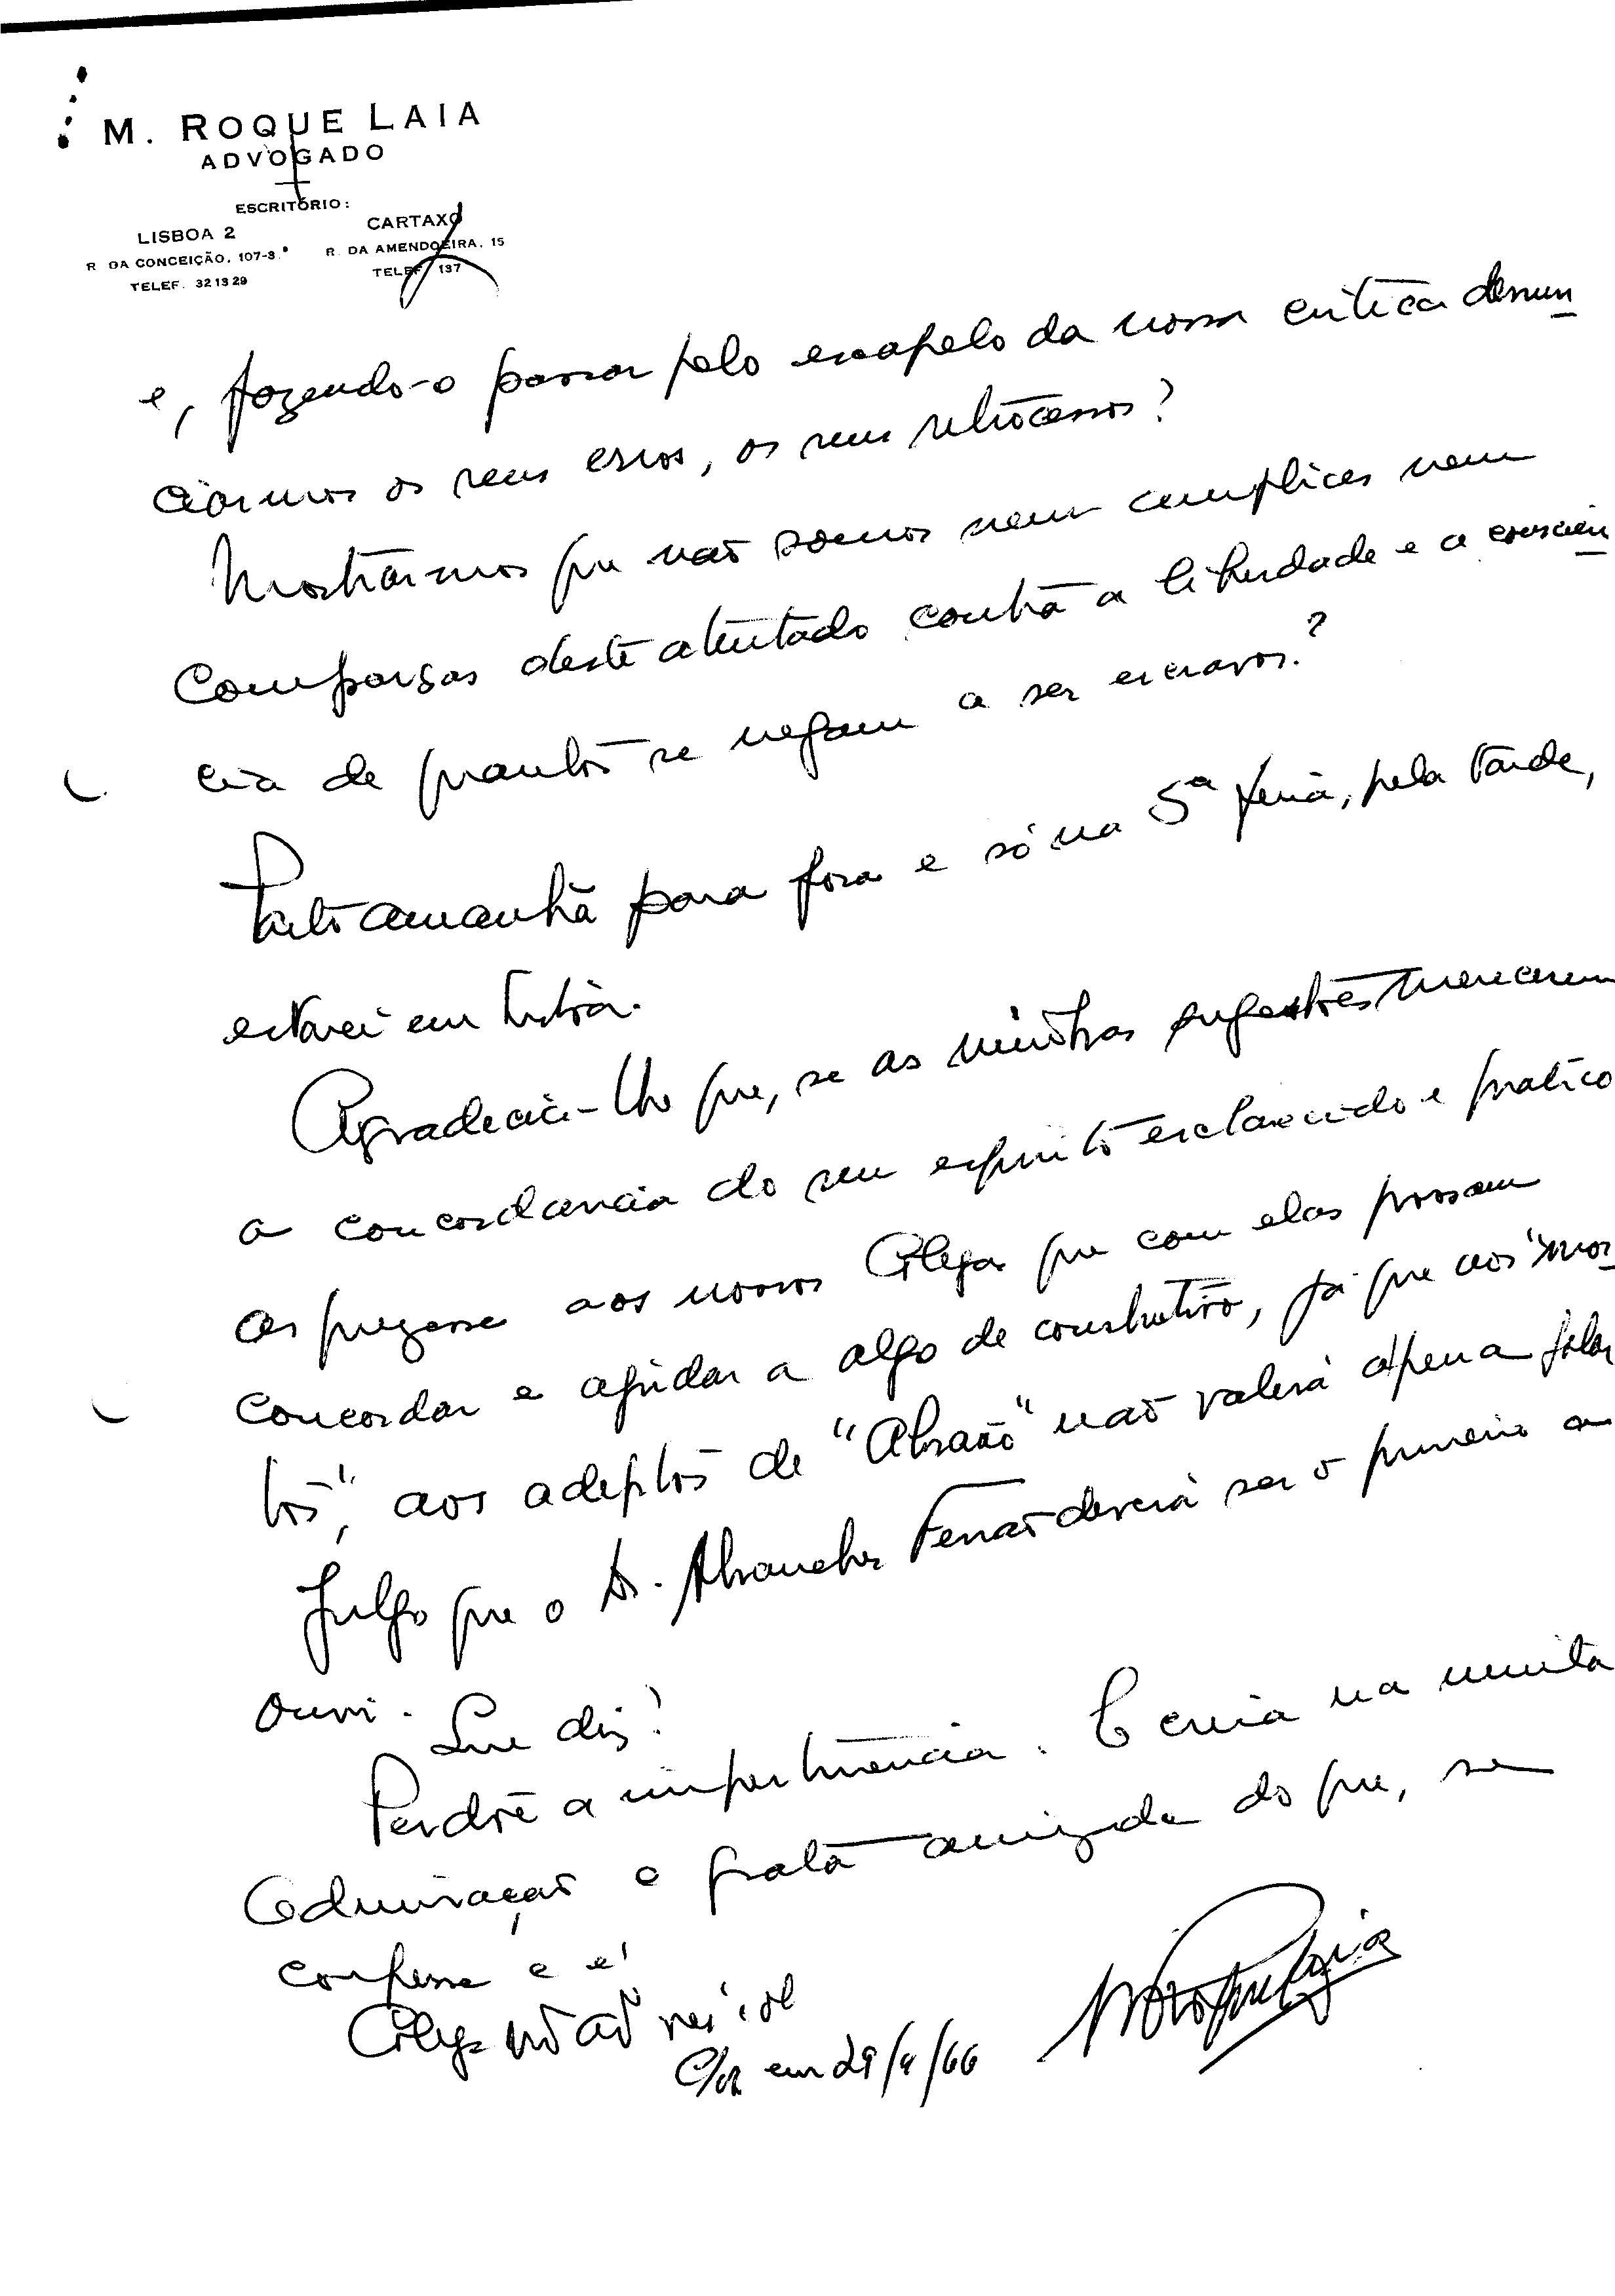 M. ROQUE LAIA
ADVOGADO
ESCRITÓRIO:
LISBOA 2
R DA CONCEIÇÃO, 107-3.º
TELEF. 32 13 29
CARTAXO
R. DA AMENDOEIRA, 15
TELEF. 137
e, fazendo-o passar pelo escapelo da nossa critica denun
ciarmos os seus erros, os seus retrocessos?
Mostrarmos que não somos nem cumplices nem
comparsas deste atentado contra a liberdade e a consciên
cia de quantos se negam a ser escravos?
Parto amanhã para fora e só na 5ª feira, pela tarde,
estarei em Lisboa.
Agradecia-lhe que, se as minhas sugestões merecerem
a concordancia do seu espirito esclarecido e pratico
as fizesse aos nossos Colegas que com elas possam
concordar e ajudar a algo de construtivo, já que aos "mor
tos", aos adeptos de "Abraão" não valerá a pena falar
Julgo que o Dr. Abranches Ferrão deveria ser o primeiro a
ouvir. Que diz?
Perdoe a impertinencia. E creia na muita
admiração e grata amizade do que, se
confessa e é
Colega
em 29/4/66